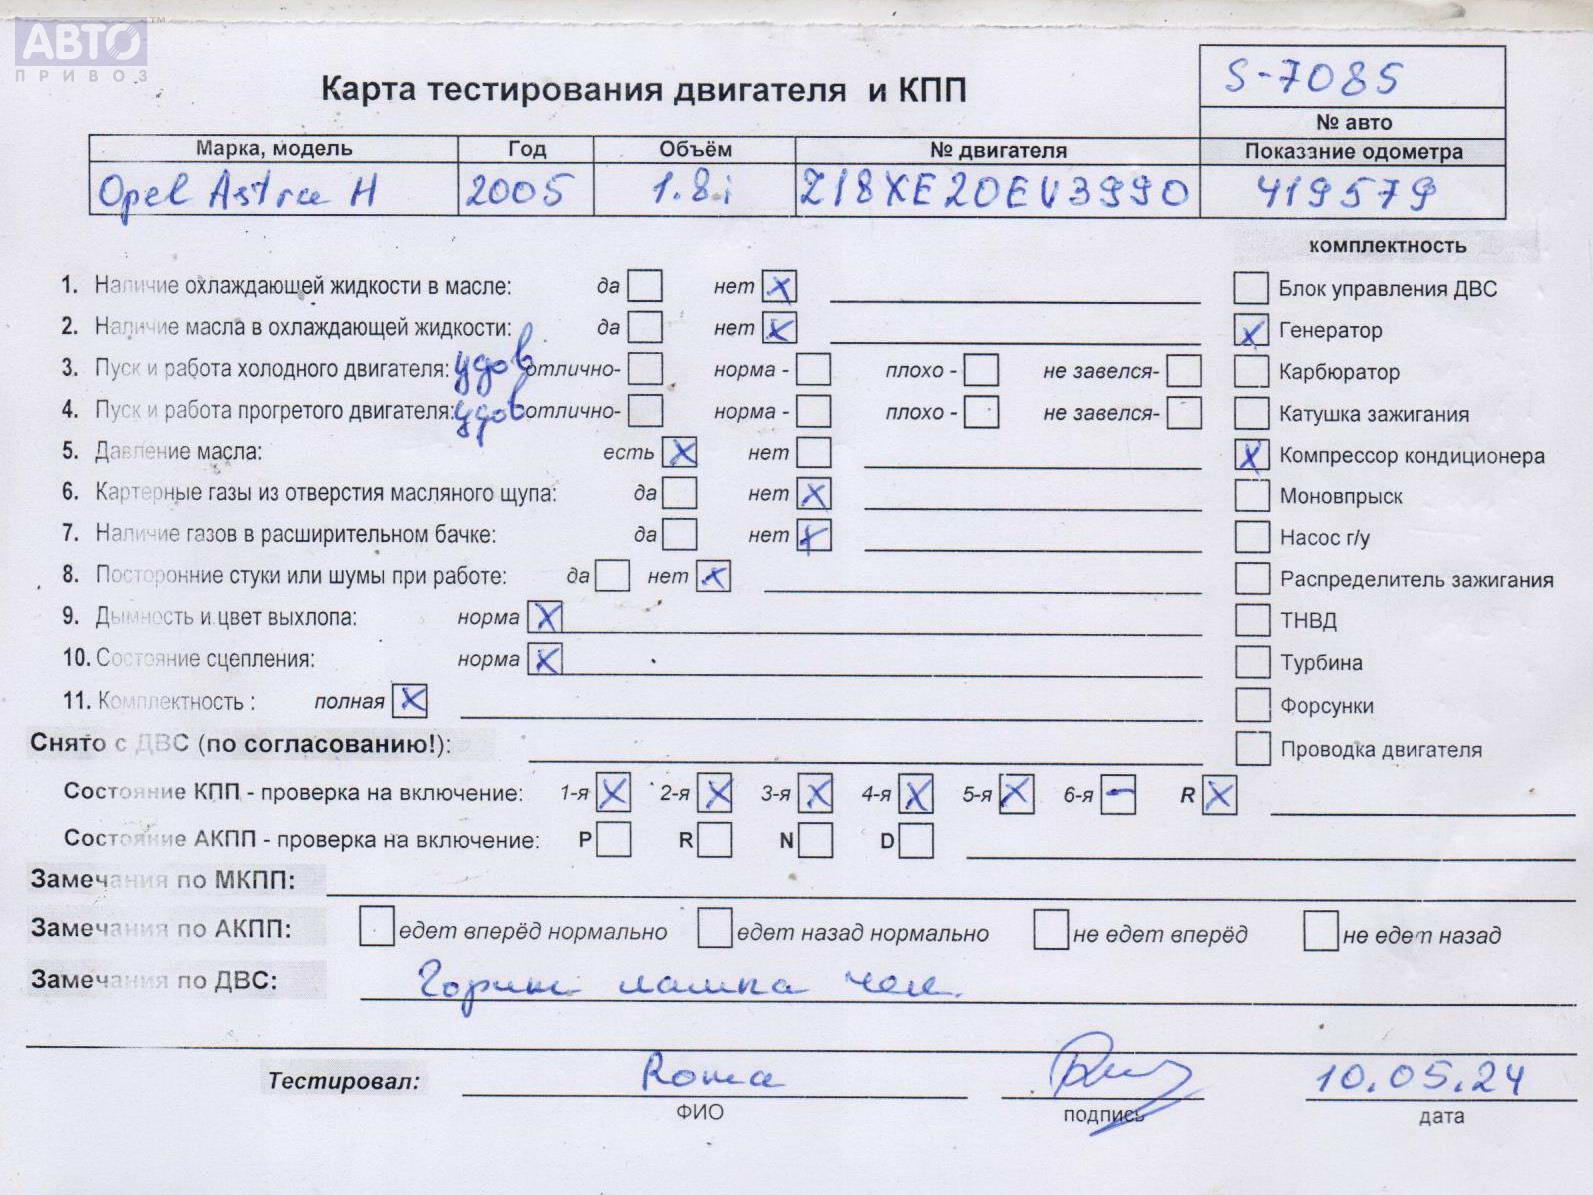 АВТО
ПРИВОЗ
Карта тестирования двигателя и КПП
S-7085
№ авто
Марка, модель Год Объём № двигателя Показание одометра
Opel Astra H 2005 1.8i Z18XE20EV3990 419579
комплектность
1. Наличие охлаждающей жидкости в масле: да нет X
Блок управления ДВС
2. Наличие масла в охлаждающей жидкости: да нет X
X Генератор
3. Пуск и работа холодного двигателя: удов отлично- норма - плохо - не завелся-
Карбюратор
4. Пуск и работа прогретого двигателя: удов отлично- норма - плохо - не завелся-
Катушка зажигания
5. Давление масла: есть X нет
X Компрессор кондиционера
6. Картерные газы из отверстия масляного щупа: да нет X
Моновпрыск
7. Наличие газов в расширительном бачке: да нет X
Насос г/у
8. Посторонние стуки или шумы при работе: да нет X
Распределитель зажигания
9. Дымность и цвет выхлопа: норма X
ТНВД
10. Состояние сцепления: норма X
Турбина
11. Комплектность : полная X
Форсунки
Снято с ДВС (по согласованию!):
Проводка двигателя
Состояние КПП - проверка на включение: 1-я X 2-я X 3-я X 4-я X 5-я X 6-я - R X
Состояние АКПП - проверка на включение: P R N D
Замечания по МКПП:
Замечания по АКПП: едет вперёд нормально едет назад нормально не едет вперёд не едет назад
Замечания по ДВС: Горит лампа чек.
Тестировал: Roma 10.05.24
ФИО подпись дата